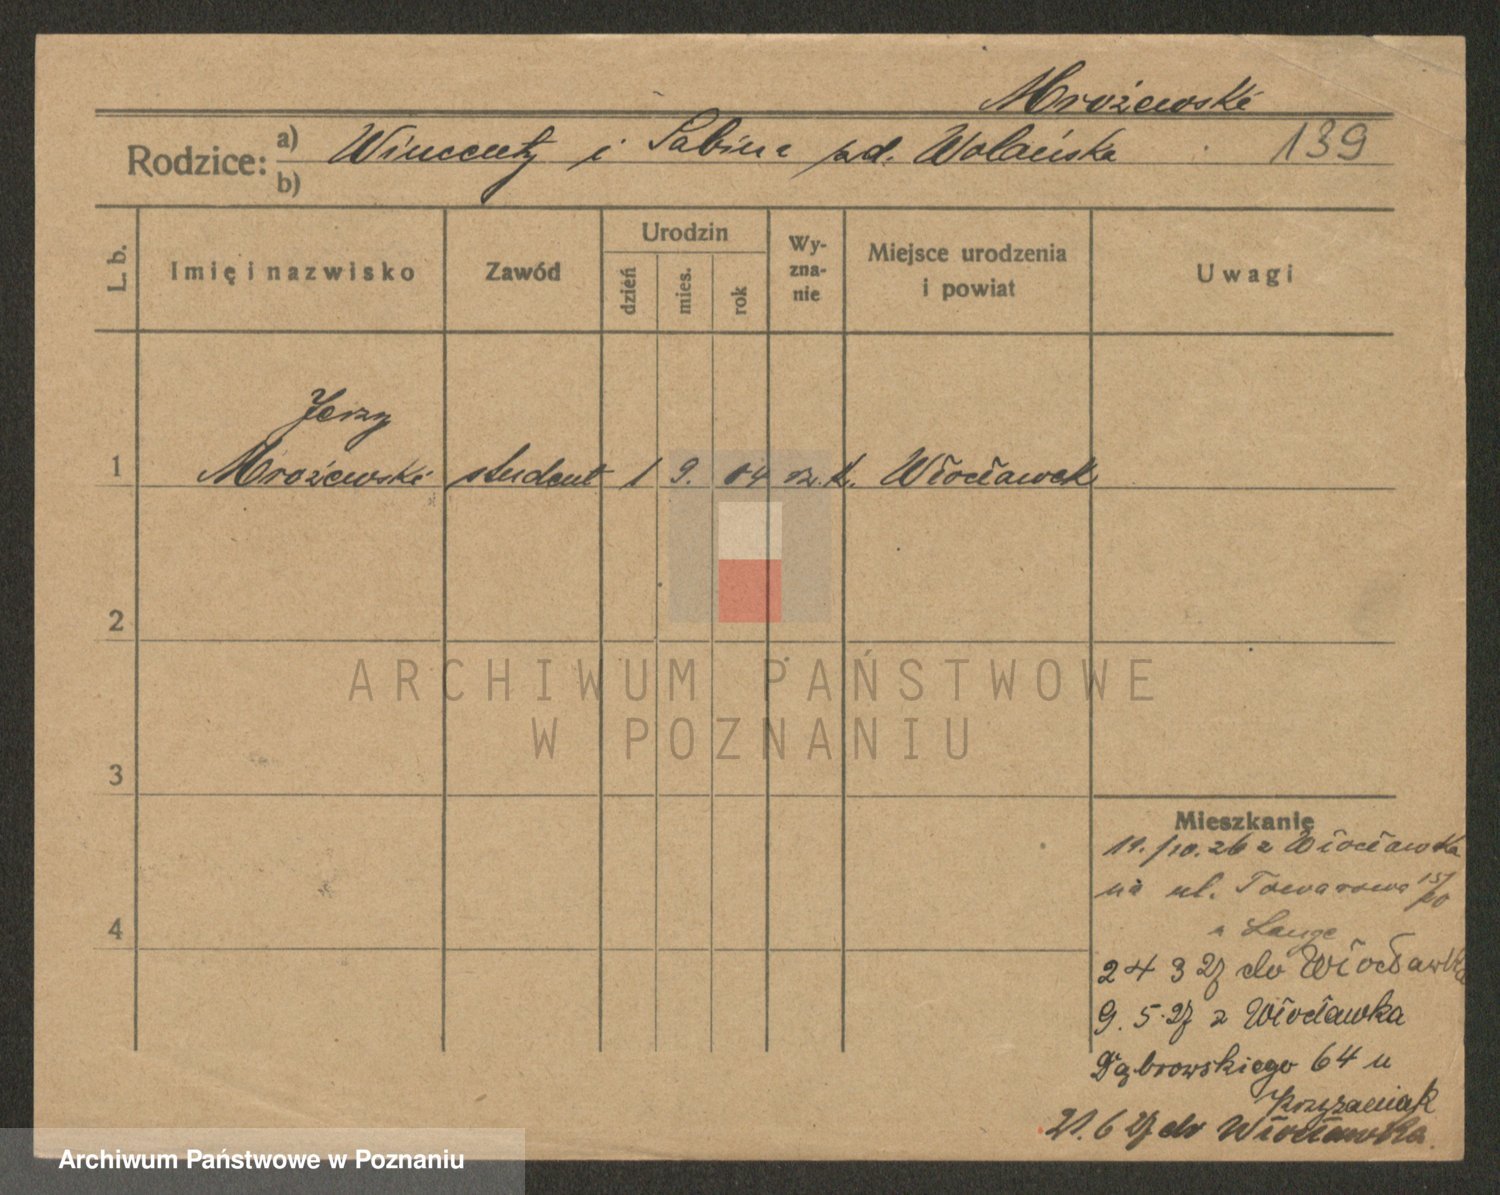 Mrożewski
Rodzice: a) Wincenty i Sabina zd. Wolańska 139
b)
L. b. Imię i nazwisko Zawód Urodzin dzień mies. rok Wy-zna-nie Miejsce urodzenia i powiat Uwagi
Jerzy
1 Mrożewski student 1 9. 04 rz. k. Włocławek
2
ARCHIWUM PAŃSTWOWE
W POZNANIU
3
Mieszkanie
19./10.26 z Włocławka
na ul. Towarowa 15/
u Lange
4
24 3 27 do Włocławka
9. 5. 27 z Włocławka
Dąbrowskiego 64 u
Krzyżaniak
21. 6 27 do Włocławka.
Archiwum Państwowe w Poznaniu